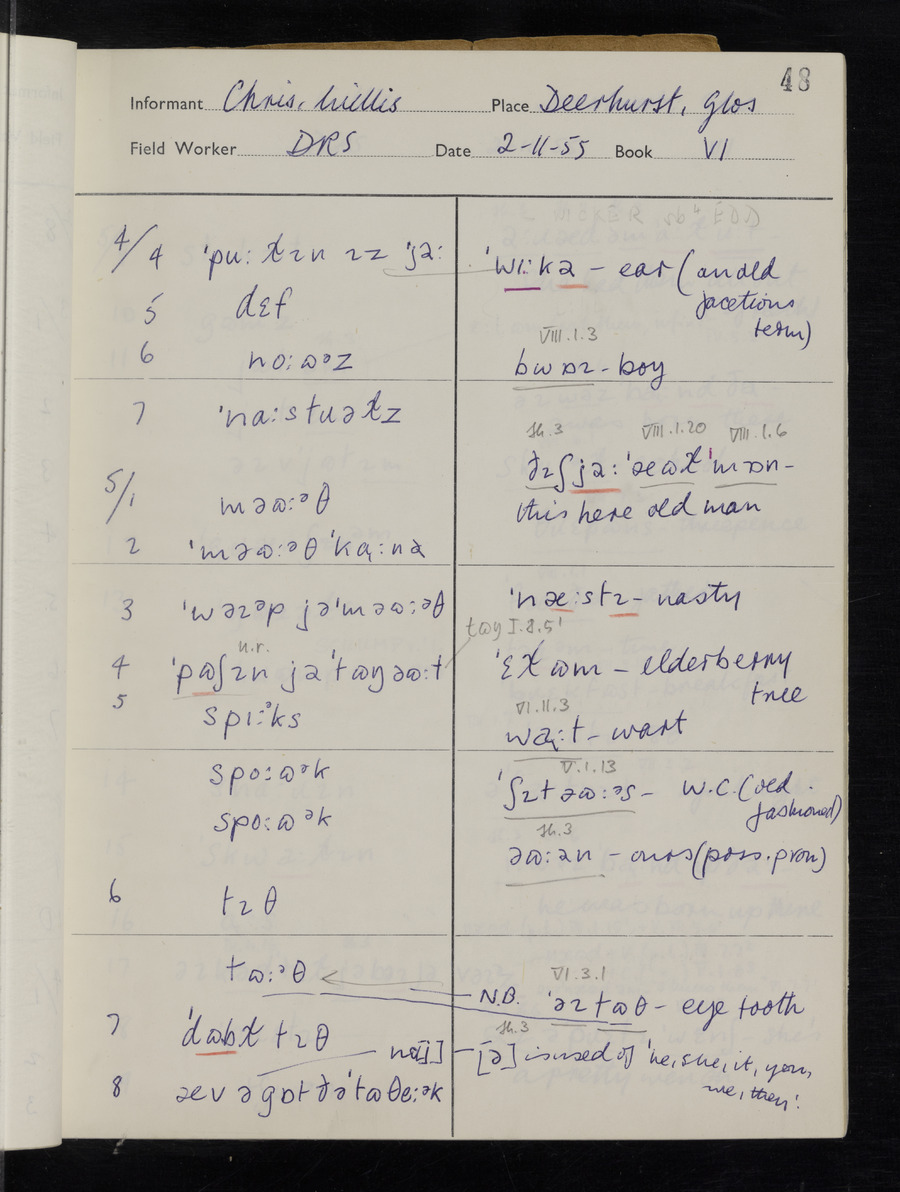 48
Informant Chris. Willis Place Deerhurst, Glos
Field Worker DRS Date 2-11-55 Book VI
4/4 'pu: tɪn ɪz 'jə:
5 dɛf
6 no:ɷᵊz
7 'na:stuəɫz
5/1 məɷ:ᵊθ
2 'məɷ:ᵊθ 'ka̜:nə
3 'wəɪəp jə'məɷ:əθ
n.r.
4 'pɷʃɪn jə'tɷŋəɷ:t
5 spɪ:ᵊks
spo:ɷᵊk
spo:ɷᵊk
6 tɪθ
tɷ:ᵊθ
7 'dɷbɫ tɪθ
8 æv əgɒt ðə'tɷθe:ək
'wɪ:kə - ear (an old
facetious
term)
VIII.1.3
bwɒɪ - boy
sh.3 VIII.1.20 VIII.1.6
ðɪʃ jə: 'æɷɫ 'mɒn -
this here old man
'næ:stɪ - nasty
tɷŋ I.8.5!
'ɛɫɷm - elderberry
tree
VI.11.3
wa̜:t - wart
V.1.13
'ʃɪtəɷ:ᵊs - W.C. (old
fashioned)
sh.3
əɷ:ən - ours (poss. pron)
VI.3.1
N.B. 'əɪtɷθ - eye tooth
sh.3
[ə] is used of 'he, she, it, you,
me, they!